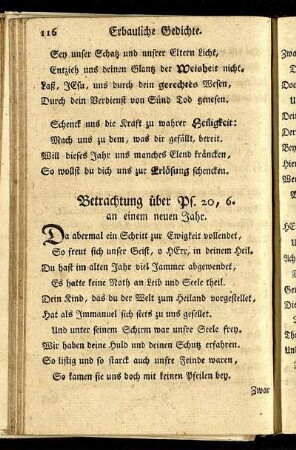 116 Erbauliche Gedichte.
Sey unser Schatz und unsrer Eltern Licht,
Entzieh uns deinen Glantz der Weisheit nicht,
Laß, JEsu, uns durch dein gerechtes Wesen,
Durch dein Verdienst von Sünd Tod genesen.
Schenck uns die Kraft zu wahrer Heiligkeit:
Mach uns zu dem, was dir gefällt, bereit.
Will dieses Jahr uns manches Elend kräncken,
So wollst du dich uns zur Erlösung schencken.
Betrachtung über Ps. 20, 6.
an einem neuen Jahr.
Da abermal ein Schritt zur Ewigkeit vollendet,
So freut sich unser Geist, o HErr, in deinem Heil.
Du hast im alten Jahr viel Jammer abgewendet,
Es hatte keine Noth an Leib und Seele theil.
Dein Kind, das du der Welt zum Heiland vorgestellet,
Hat als Immanuel sich stets zu uns gesellet.
Und unter seinem Schirm war unsre Seele frey.
Wir haben deine Huld und deinen Schutz erfahren.
So listig und so starck auch unsre Feinde waren,
So kamen sie uns doch mit keinen Pfeilen bey.
Zwar